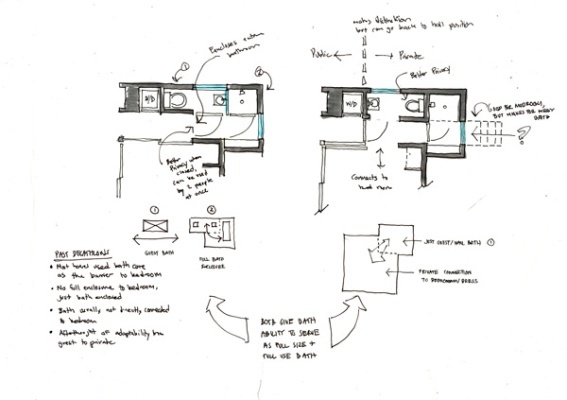 but can go back to hall position
Public
Private
Better Privacy
①
②
Encloses entire
bathroom
W/D
W/D
Better
Privacy when
closed,
can be used
by 2 people
at once
Connects to
?
①
②
GUEST BATH
FULL BATH
JUST GUEST/HALL BATH ①
PRIVATE CONNECTION
TO BEDROOM/DRESS
PAST DIRECTIONS
• Most have used bath core
as the barrier to bedroom
• No full enclosure to bedroom,
just bath enclosed
• Bath usually, not directly, connected
to bedroom
• Afterthought of adaptability from
guest to private
BOTH GIVE BATH
ABILITY TO SERVE
AS FULL SIZE +
FULL USE BATH